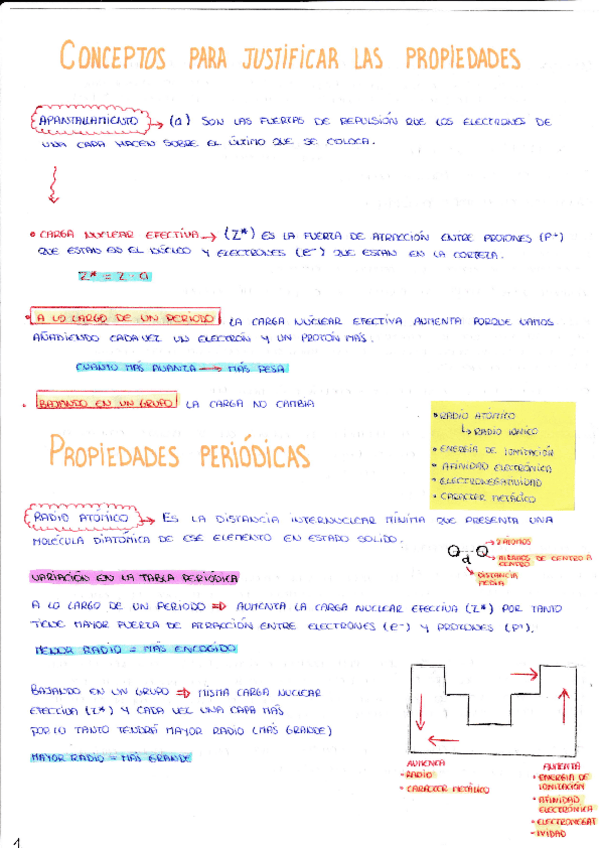 CONCEPTOS PARA JUSTIFICAR LAS PROPIEDADES
APANTALLAMIENTO → (a) SON LAS FUERZAS DE REPULSIÓN QUE LOS ELECTRONES DE
UNA CAPA HACEN SOBRE EL ÚLTIMO QUE SE COLOCA.
• CARGA NUCLEAR EFECTIVA → (Z*) ES LA FUERZA DE ATRACCIÓN ENTRE PROTONES (P+)
QUE ESTAN EN EL NÚCLEO Y ELECTRONES (e-) QUE ESTAN EN LA CORTEZA.
Z* = Z - a
• A LO LARGO DE UN PERIODO LA CARGA NUCLEAR EFECTIVA AUMENTA PORQUE VAMOS
AÑADIENDO CADA VEZ UN ELECTRÓN Y UN PROTÓN MÁS.
CUANTO MÁS AVANZA → MÁS PESA
• BAJANDO EN UN GRUPO LA CARGA NO CAMBIA
• RADIO ATÓMICO
↳ RADIO IÓNICO
• ENERGÍA DE IONIZACIÓN
• AFINIDAD ELECTRÓNICA
• ELECTRONEGATIVIDAD
• CARÁCTER METÁLICO
PROPIEDADES PERIÓDICAS
RADIO ATÓMICO → ES LA DISTANCIA INTERNUCLEAR MÍNIMA QUE PRESENTA UNA
MOLÉCULA DIATÓMICA DE ESE ELEMENTO EN ESTADO SOLIDO.
→ 2 ÁTOMOS
DE CENTRO A
CENTRO
d
→ DISTANCIA
MEDIA
VARIACIÓN EN LA TABLA PERIÓDICA
A LO LARGO DE UN PERIODO ⇒ AUMENTA LA CARGA NUCLEAR EFECTIVA (Z*) POR TANTO
TIENE MAYOR FUERZA DE ATRACCIÓN ENTRE ELECTRONES (e-) Y PROTONES (P+).
MENOR RADIO = MÁS ENCOGIDO
BAJANDO EN UN GRUPO ⇒ MISMA CARGA NUCLEAR
EFECTIVA (Z*) Y CADA VEZ UNA CAPA MÁS
POR LO TANTO TENDRÁ MAYOR RADIO (MÁS GRANDE)
MAYOR RADIO = MÁS GRANDE
AUMENTA
- RADIO
- CARÁCTER METÁLICO
AUMENTA
• ENERGÍA DE
IONIZACIÓN
• AFINIDAD
ELECTRÓNICA
• ELECTRONEGAT
-IVIDAD
1